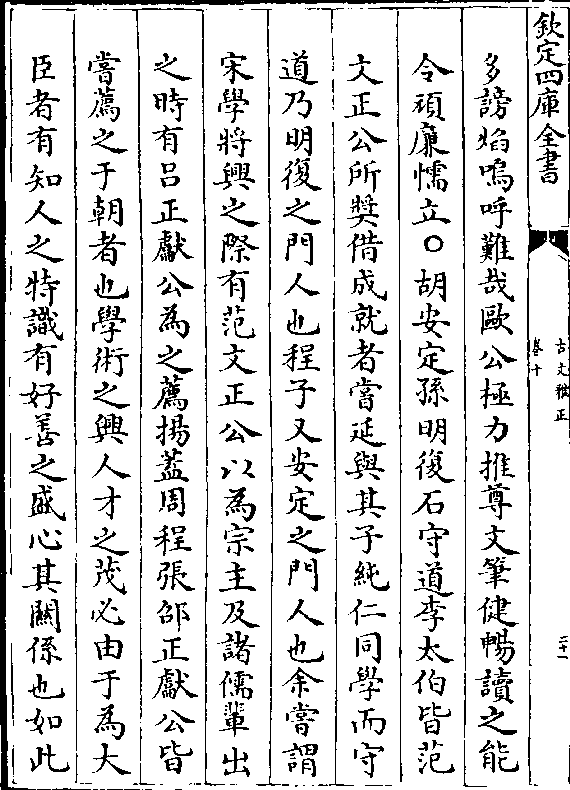 欽定四庫全書
古文雅正
卷十
二十一
多謗焰嗚呼難哉歐公極力推尊文筆健暢讀之能
令頑廉懦立○胡安定孫明復石守道李太伯皆范
文正公所奬借成就者嘗延與其子純仁同學而守
道乃明復之門人也程子又安定之門人也余嘗謂
宋學將興之際有范文正公以為宗主及諸儒輩出
之時有吕正獻公為之薦揚蓋周程張邵正獻公皆
嘗薦之于朝者也學術之興人才之茂必由于為大
臣者有知人之特識有好善之盛心其關係也如此